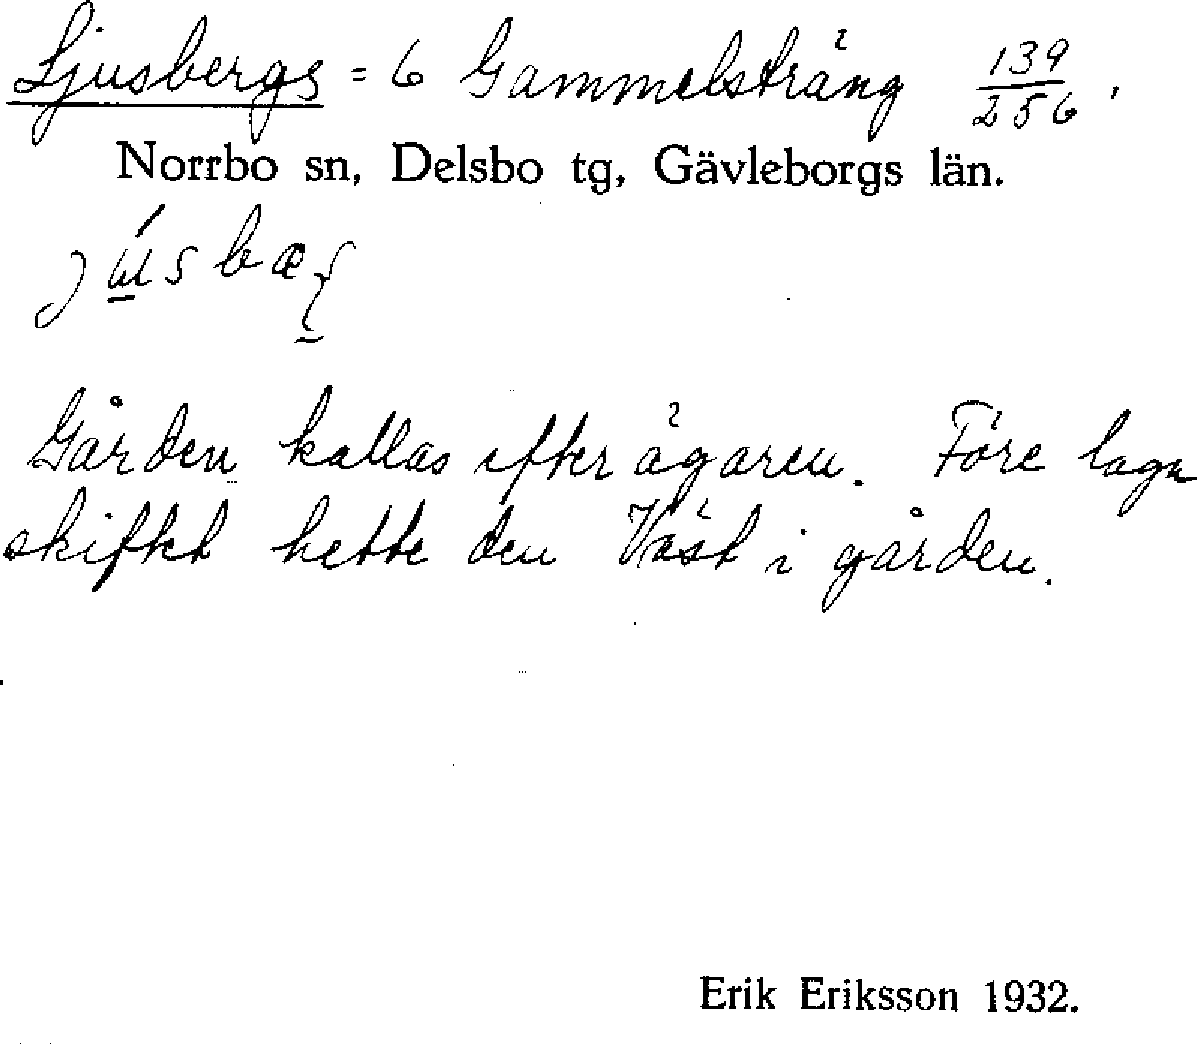 Ljusbergs = 6 Gammelsträng 139/256.
Norrbo sn, Delsbo tg, Gävleborgs län.
Gården kallas efter ägaren. Före laga
skiftet hette den Väst i gården.
Erik Eriksson 1932.